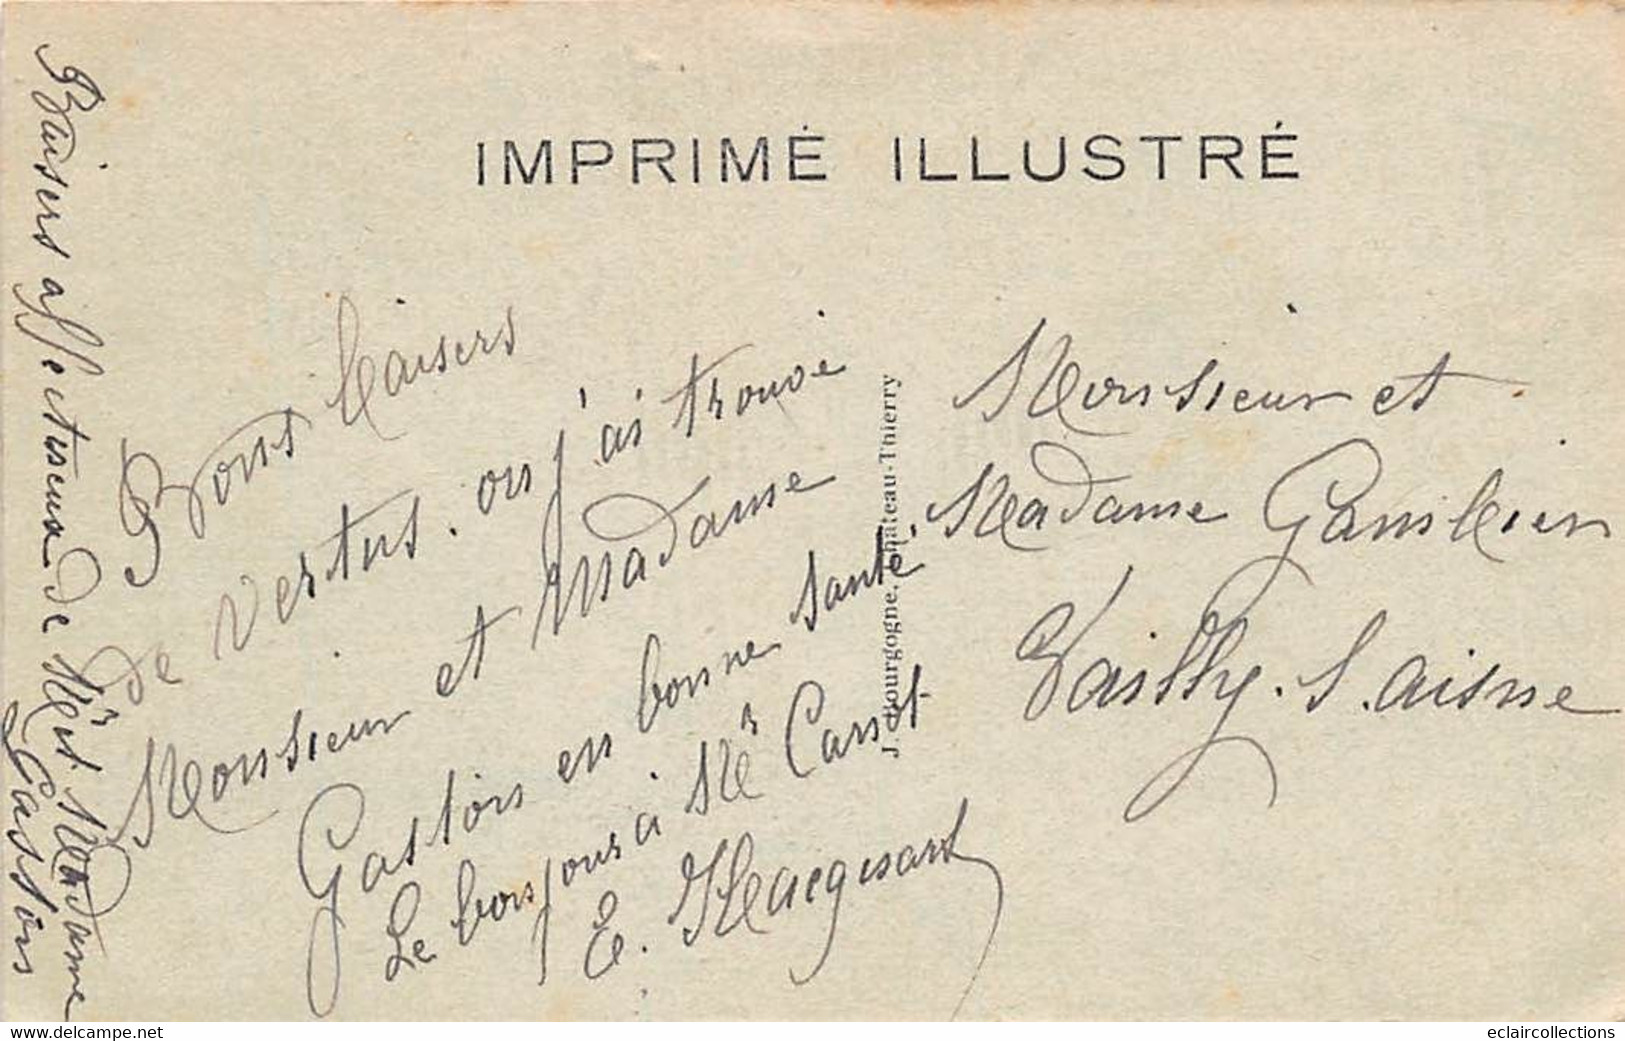 IMPRIMÉ ILLUSTRÉ
Bons baisers
de Vertus. ou j'ai trouvé
Monsieur et Madame
Gaston en bonne santé.
Le bonjour à Mr Carrot
E.
Baisers affectueux de Mr et Madame
Gaston
J. Bourgogne, Château-Thierry
Monsieur et
Madame
Vailly. s. aisne
www.delcampe.net
eclaircollections